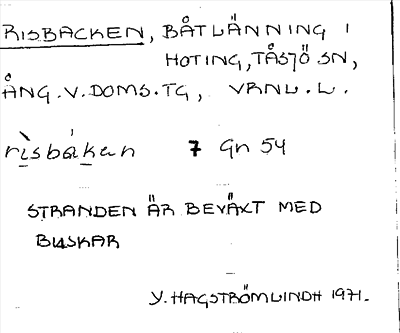 RISBACKEN, BÅTLÄNNING I
HOTING, TÅSJÖ SN,
ÅNG.V.DOMS.TG, VRNL.L.
rìsbákan 7 Gn 54
STRANDEN ÄR BEVÄXT MED
BUSKAR
Y. HAGSTRÖMLINDH 1971.